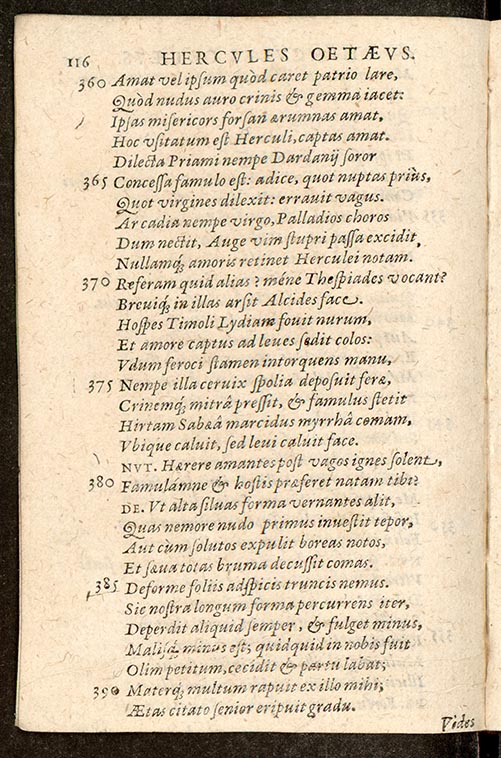 116 HERCVLES OETÆVS.
360 Amat vel ipsum quòd caret patrio lare,
Quòd nudus auro crinis & gemma iacet:
Ipsas misericors forsan ærumnas amat,
Hoc vsitatum est Herculi, captas amat.
Dilecta Priami nempe Dardanij soror
365 Concessa famulo est: adice, quot nuptas priùs,
Quot virgines dilexit: errauit vagus.
Arcadia nempe virgo, Palladios choros
Dum nectit, Auge vim stupri passa excidit,
Nullamq́; amoris retinet Herculei notam.
370 Referam quid alias? méne Thespiades vocant?
Breuiq́; in illas arsit Alcides face.
Hospes Timoli Lydiam fouit nurum,
Et amore captus ad leues sedit colos:
Vdum feroci stamen intorquens manu,
375 Nempe illa ceruix spolia deposuit feræ,
Crinemq́; mitrâ pressit, & famulus stetit
Hirtam Sabæâ marcidus myrrhâ comam,
Vbique caluit, sed leui caluit face.
NVT. Hærere amantes post vagos ignes solent,
380 Famulámne & hostis præferet natam tibi?
DE. Vt alta siluas forma vernantes alit,
Quas nemore nudo primus inuestit tepor,
Aut cùm solutos expulit boreas notos,
Et sæua totas bruma decussit comas.
385 Deforme foliis adspicis truncis nemus.
Sic nostra longum forma percurrens iter,
Deperdit aliquid semper, & fulget minus,
Malisq́; minus est; quidquid in nobis fuit
Olim petitum, cecidit & partu labat;
390 Materq́; multum rapuit ex illo mihi;
Ætas citato senior eripuit gradu.
Vides